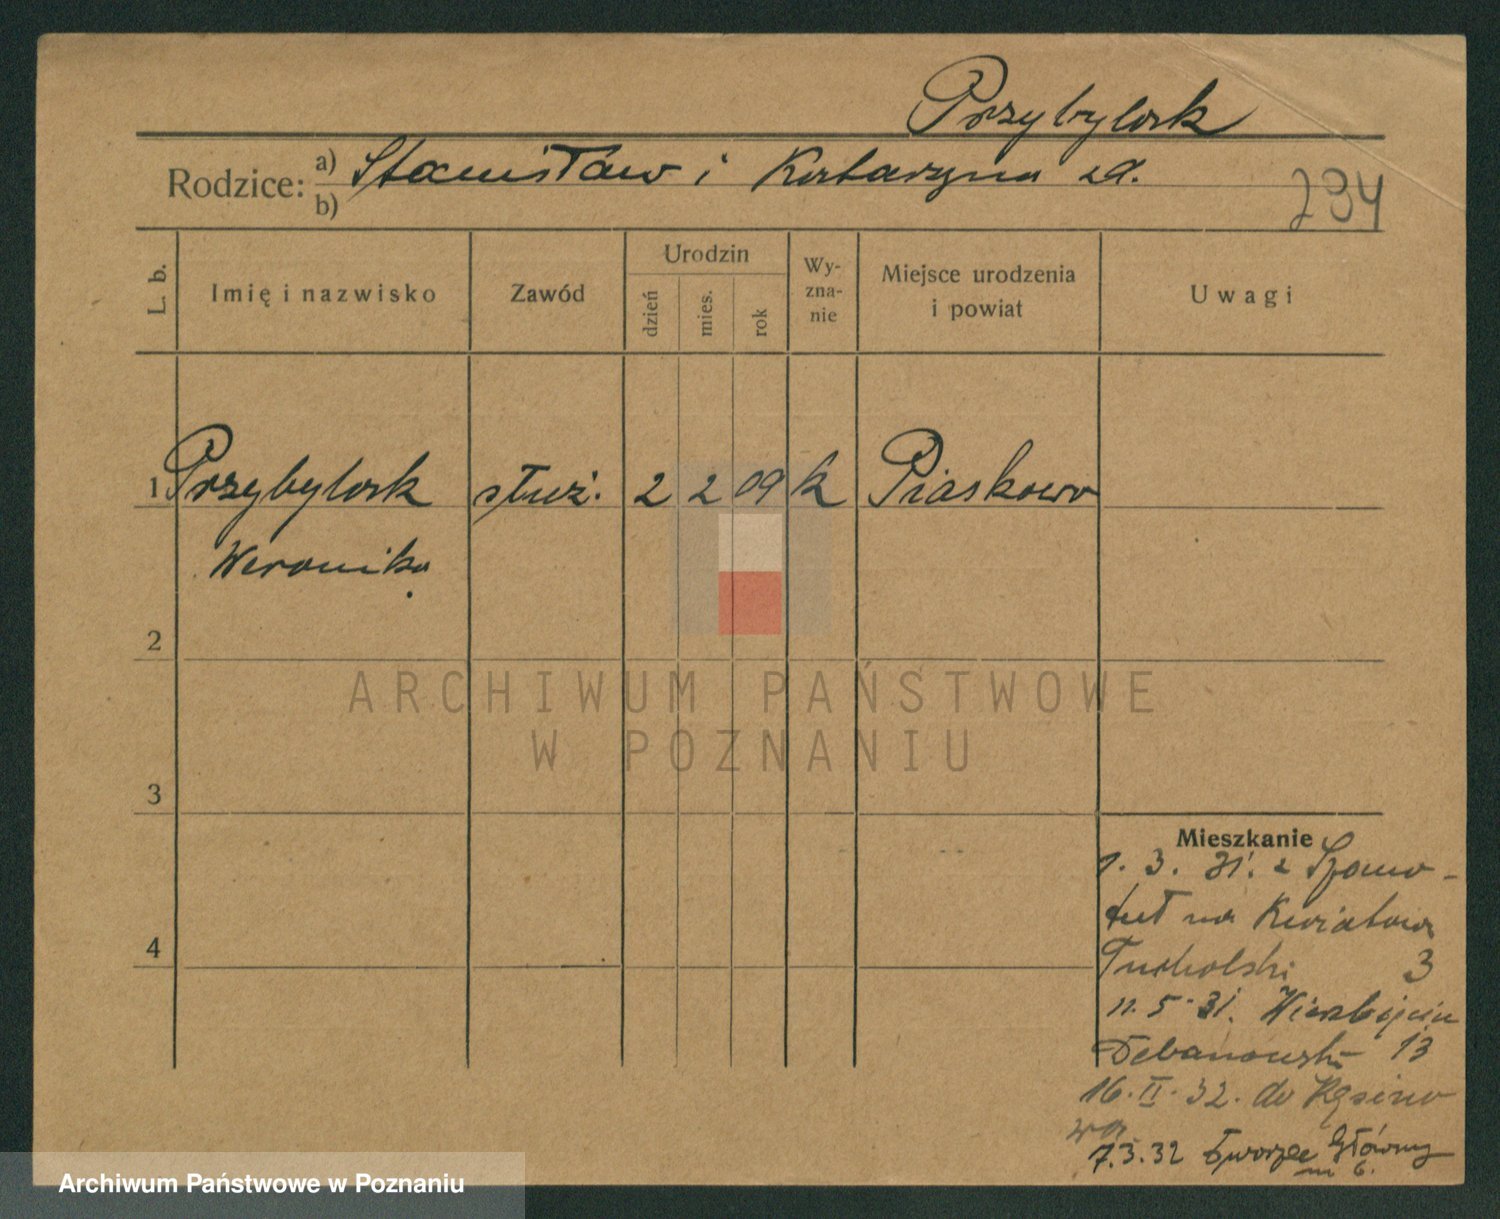 Przybylak
Rodzice: a) Stanisław i Katarzyna
b)
294
L. b.
Imię i nazwisko
Zawód
Urodzin
dzień
mies.
rok
Wy-
zna-
nie
Miejsce urodzenia
i powiat
Uwagi
1 Przybylak służ. 2 2 09 k Piaskowo
Weronika
2
3
4
ARCHIWUM PAŃSTWOWE
W POZNANIU
Mieszkanie
1. 3. 31. z Szamo-
tuł na Kwiatowa
Tucholski 3
11. 5. 31. Wierzbięcin
13
16. II. 32. do
7.3.32 Dworzec Główny
m 6.
Archiwum Państwowe w Poznaniu